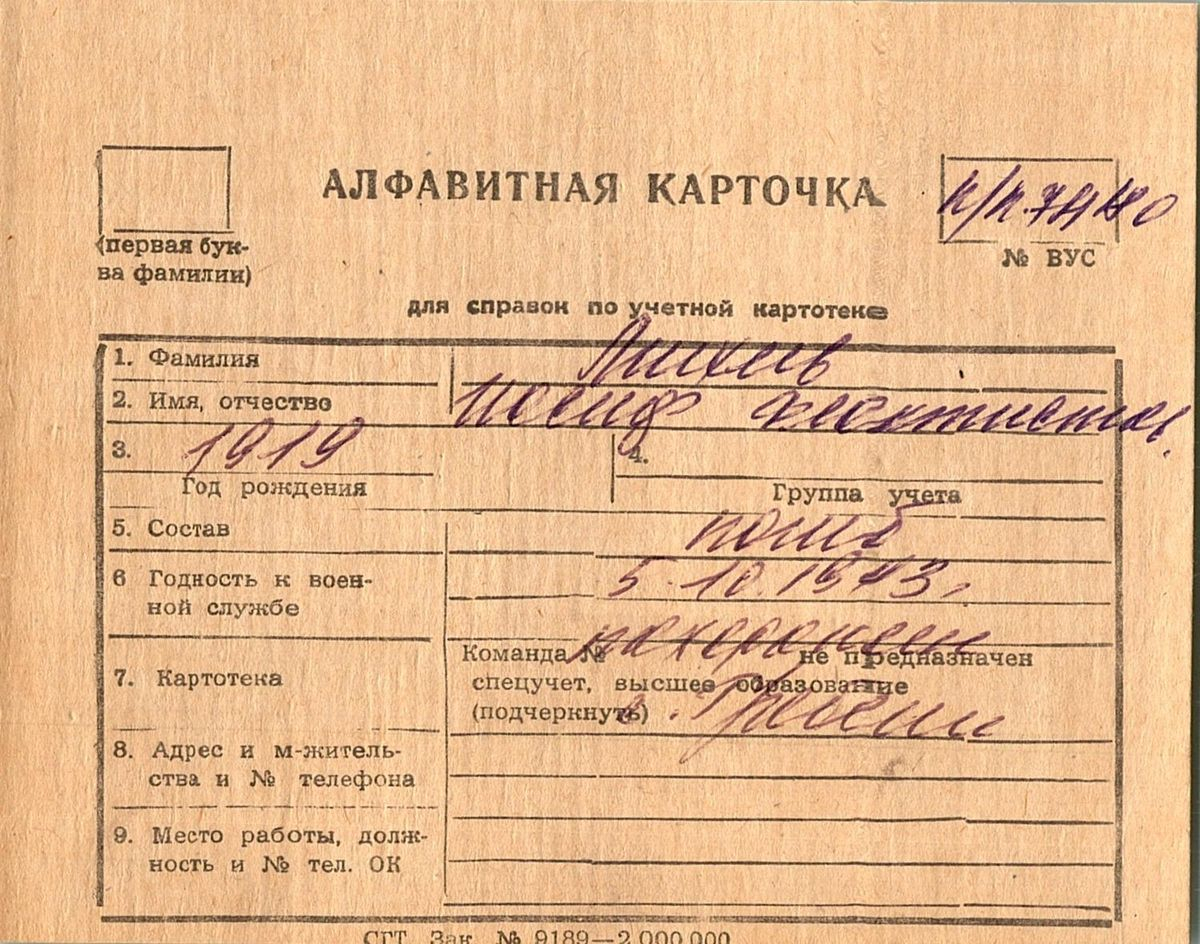 АЛФАВИТНАЯ КАРТОЧКА
(первая бук-
ва фамилии)
№ ВУС
для справок по учетной картотеке
1. Фамилия
2. Имя, отчество Иосиф
3. 1919
Год рождения
4.
Группа учета
5. Состав погиб
6 Годность к воен-
ной службе
5.10.1943.
похоронен
7. Картотека
Команда № не предназначен
спецучет, высшее образование
(подчеркнуть)
8. Адрес и м-жительс-
ства и № телефона
9. Место работы, долж-
ность и № тел. ОК
СГТ Зак. № 9189—2.000.000